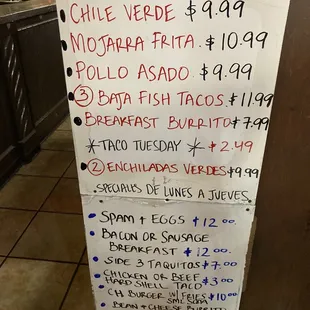 CHILE VERDE $9.99
MOJARRA FRITA $10.99
POLLO ASADO $9.99
3 BAJA FISH TACOS $11.99
BREAKFAST BURRITO $7.99
*TACO TUESDAY* $2.49
2 ENCHILADAS VERDES $9.99
SPECIALES DE LUNES A JUEVES
SPAM + EGGS $12.00
BACON OR SAUSAGE
BREAKFAST $12.00
SIDE 3 TAQUITOS $7.00
CHICKEN OR BEEF
HARD SHELL TACO $3.00
CH BURGER W/ FRIES $10.00
SML SODA
BEAN + CHEESE BURRITO